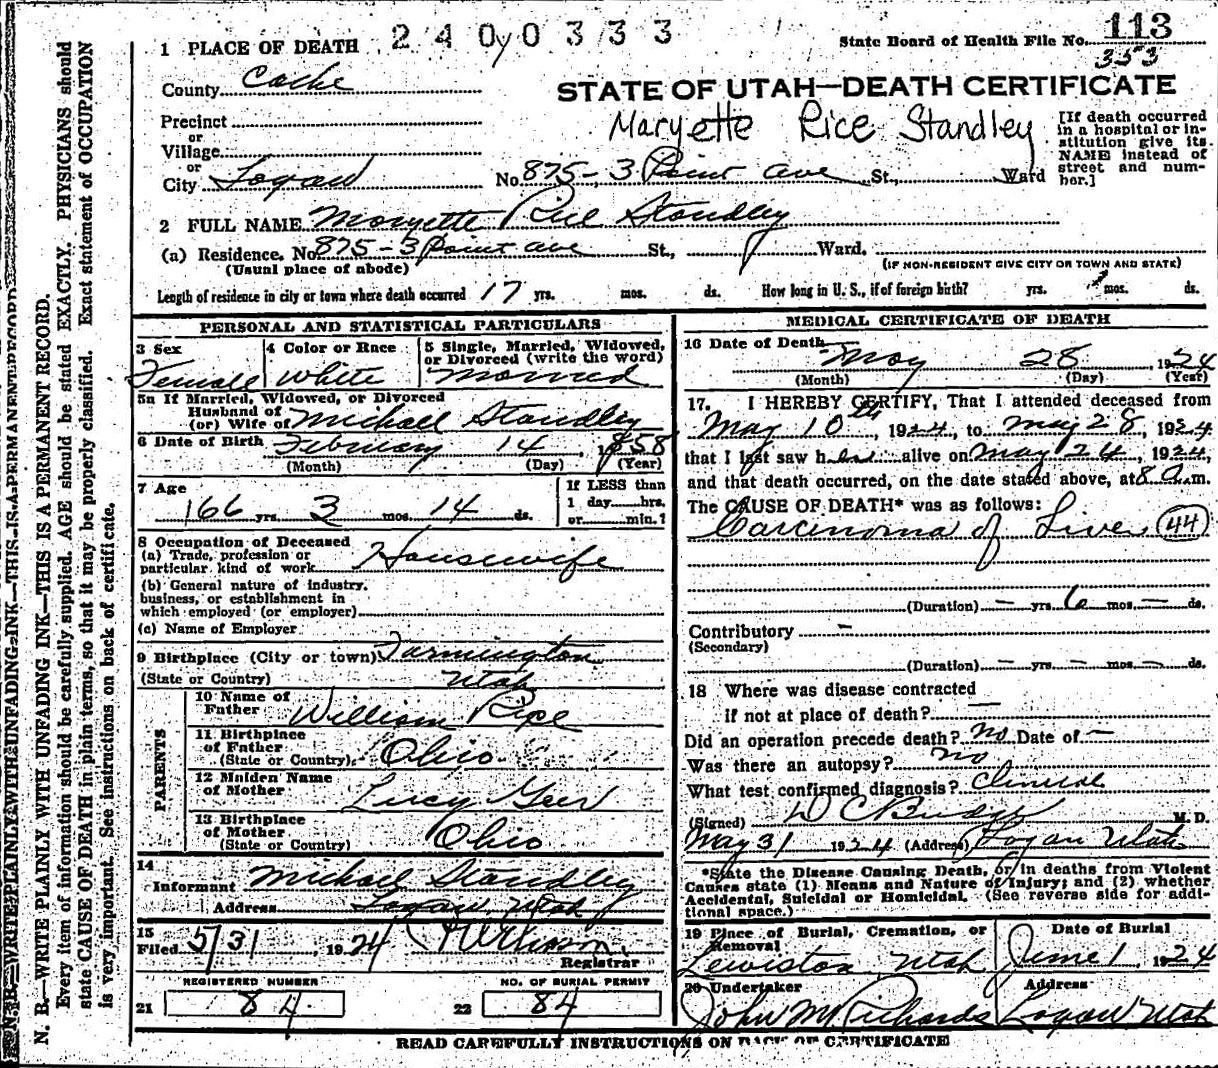 2 4 0 y 0 3 3 3
113
State Board of Health File No. 353
1 PLACE OF DEATH
County Cache
STATE OF UTAH—DEATH CERTIFICATE
Maryette Rice Standley
Precinct
or
Village
or
City Logan No. 875-3 Point ave St., Ward
[If death occurred
in a hospital or in-
stitution give its
NAME instead of
street and num-
ber.]
2 FULL NAME Maryette Rice Standley
(a) Residence. No. 875-3 Point ave St., Ward.
(Usual place of abode) (IF NON-RESIDENT GIVE CITY OR TOWN AND STATE)
Length of residence in city or town where death occurred 17 yrs. mos. ds. How long in U. S., if of foreign birth? yrs. mos. ds.
PERSONAL AND STATISTICAL PARTICULARS
3 Sex 4 Color or Race 5 Single, Married, Widowed,
or Divorced (write the word)
Female White Married
5a If Married, Widowed, or Divorced
Husband of
(or) Wife of Michael Standley
6 Date of Birth February 14, 1858
(Month) (Day) (Year)
7 Age If LESS than
66 yrs. 3 mos. 14 ds. 1 day hrs.
or min.?
8 Occupation of Deceased
(a) Trade, profession or
particular kind of work Housewife
(b) General nature of industry,
business, or establishment in
which employed (or employer)
(c) Name of Employer
9 Birthplace (City or town) Farmington
(State or Country) Utah
PARENTS
10 Name of
Father William Rice
11 Birthplace
of Father
(State or Country) Ohio
12 Maiden Name
of Mother Lucy Geer
13 Birthplace
of Mother
(State or Country) Ohio
14
Informant Michael Standley
Address Logan, Utah
15
Filed 5/31 1924
Registrar
REGISTERED NUMBER NO. OF BURIAL PERMIT
21 84 22 84
MEDICAL CERTIFICATE OF DEATH
16 Date of Death May 28, 1924
(Month) (Day) (Year)
17. I HEREBY CERTIFY, That I attended deceased from
May 10th, 1924, to May 28, 1924
that I last saw her alive on May 24, 1924,
and that death occurred, on the date stated above, at 8 a.m.
The CAUSE OF DEATH* was as follows:
Carcinoma of Liver 44
(Duration) - yrs. 6 mos. - ds.
Contributory -
(Secondary)
(Duration) - yrs. - mos. - ds.
18 Where was disease contracted
if not at place of death? -
Did an operation precede death? No Date of -
Was there an autopsy? No
What test confirmed diagnosis? Clinical
(Signed) D C Budge M. D.
May 31 1924 (Address) Logan Utah
*State the Disease Causing Death, or in deaths from Violent
Causes state (1) Means and Nature of Injury; and (2) whether
Accidental, Suicidal or Homicidal. (See reverse side for addi-
tional space.)
19 Place of Burial, Cremation, or Date of Burial
Removal
Lewiston Utah June 1 1924
20 Undertaker Address
John M Richards Logan Utah
READ CAREFULLY INSTRUCTIONS ON BACK OF CERTIFICATE
N. B.—WRITE PLAINLY WITH UNFADING INK—THIS IS A PERMANENT RECORD
N. B.—WRITE PLAINLY WITH UNFADING INK—THIS IS A PERMANENT RECORD.
Every item of information should be carefully supplied. AGE should be stated EXACTLY. PHYSICIANS should
state CAUSE OF DEATH in plain terms, so that it may be properly classified. Exact statement of OCCUPATION
is very important. See instructions on back of certificate.